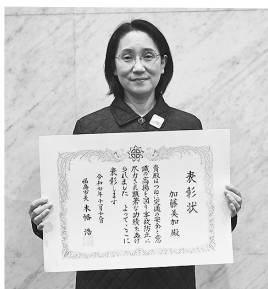 表彰状
加藤美加 殿
貴殿はつねに交通の安全と意
識の高揚を図り事故防止に
尽力され顕著な功績をあげ
られました よってここに
表彰します
令和七年十二月十二日
福島市長 木幡 浩